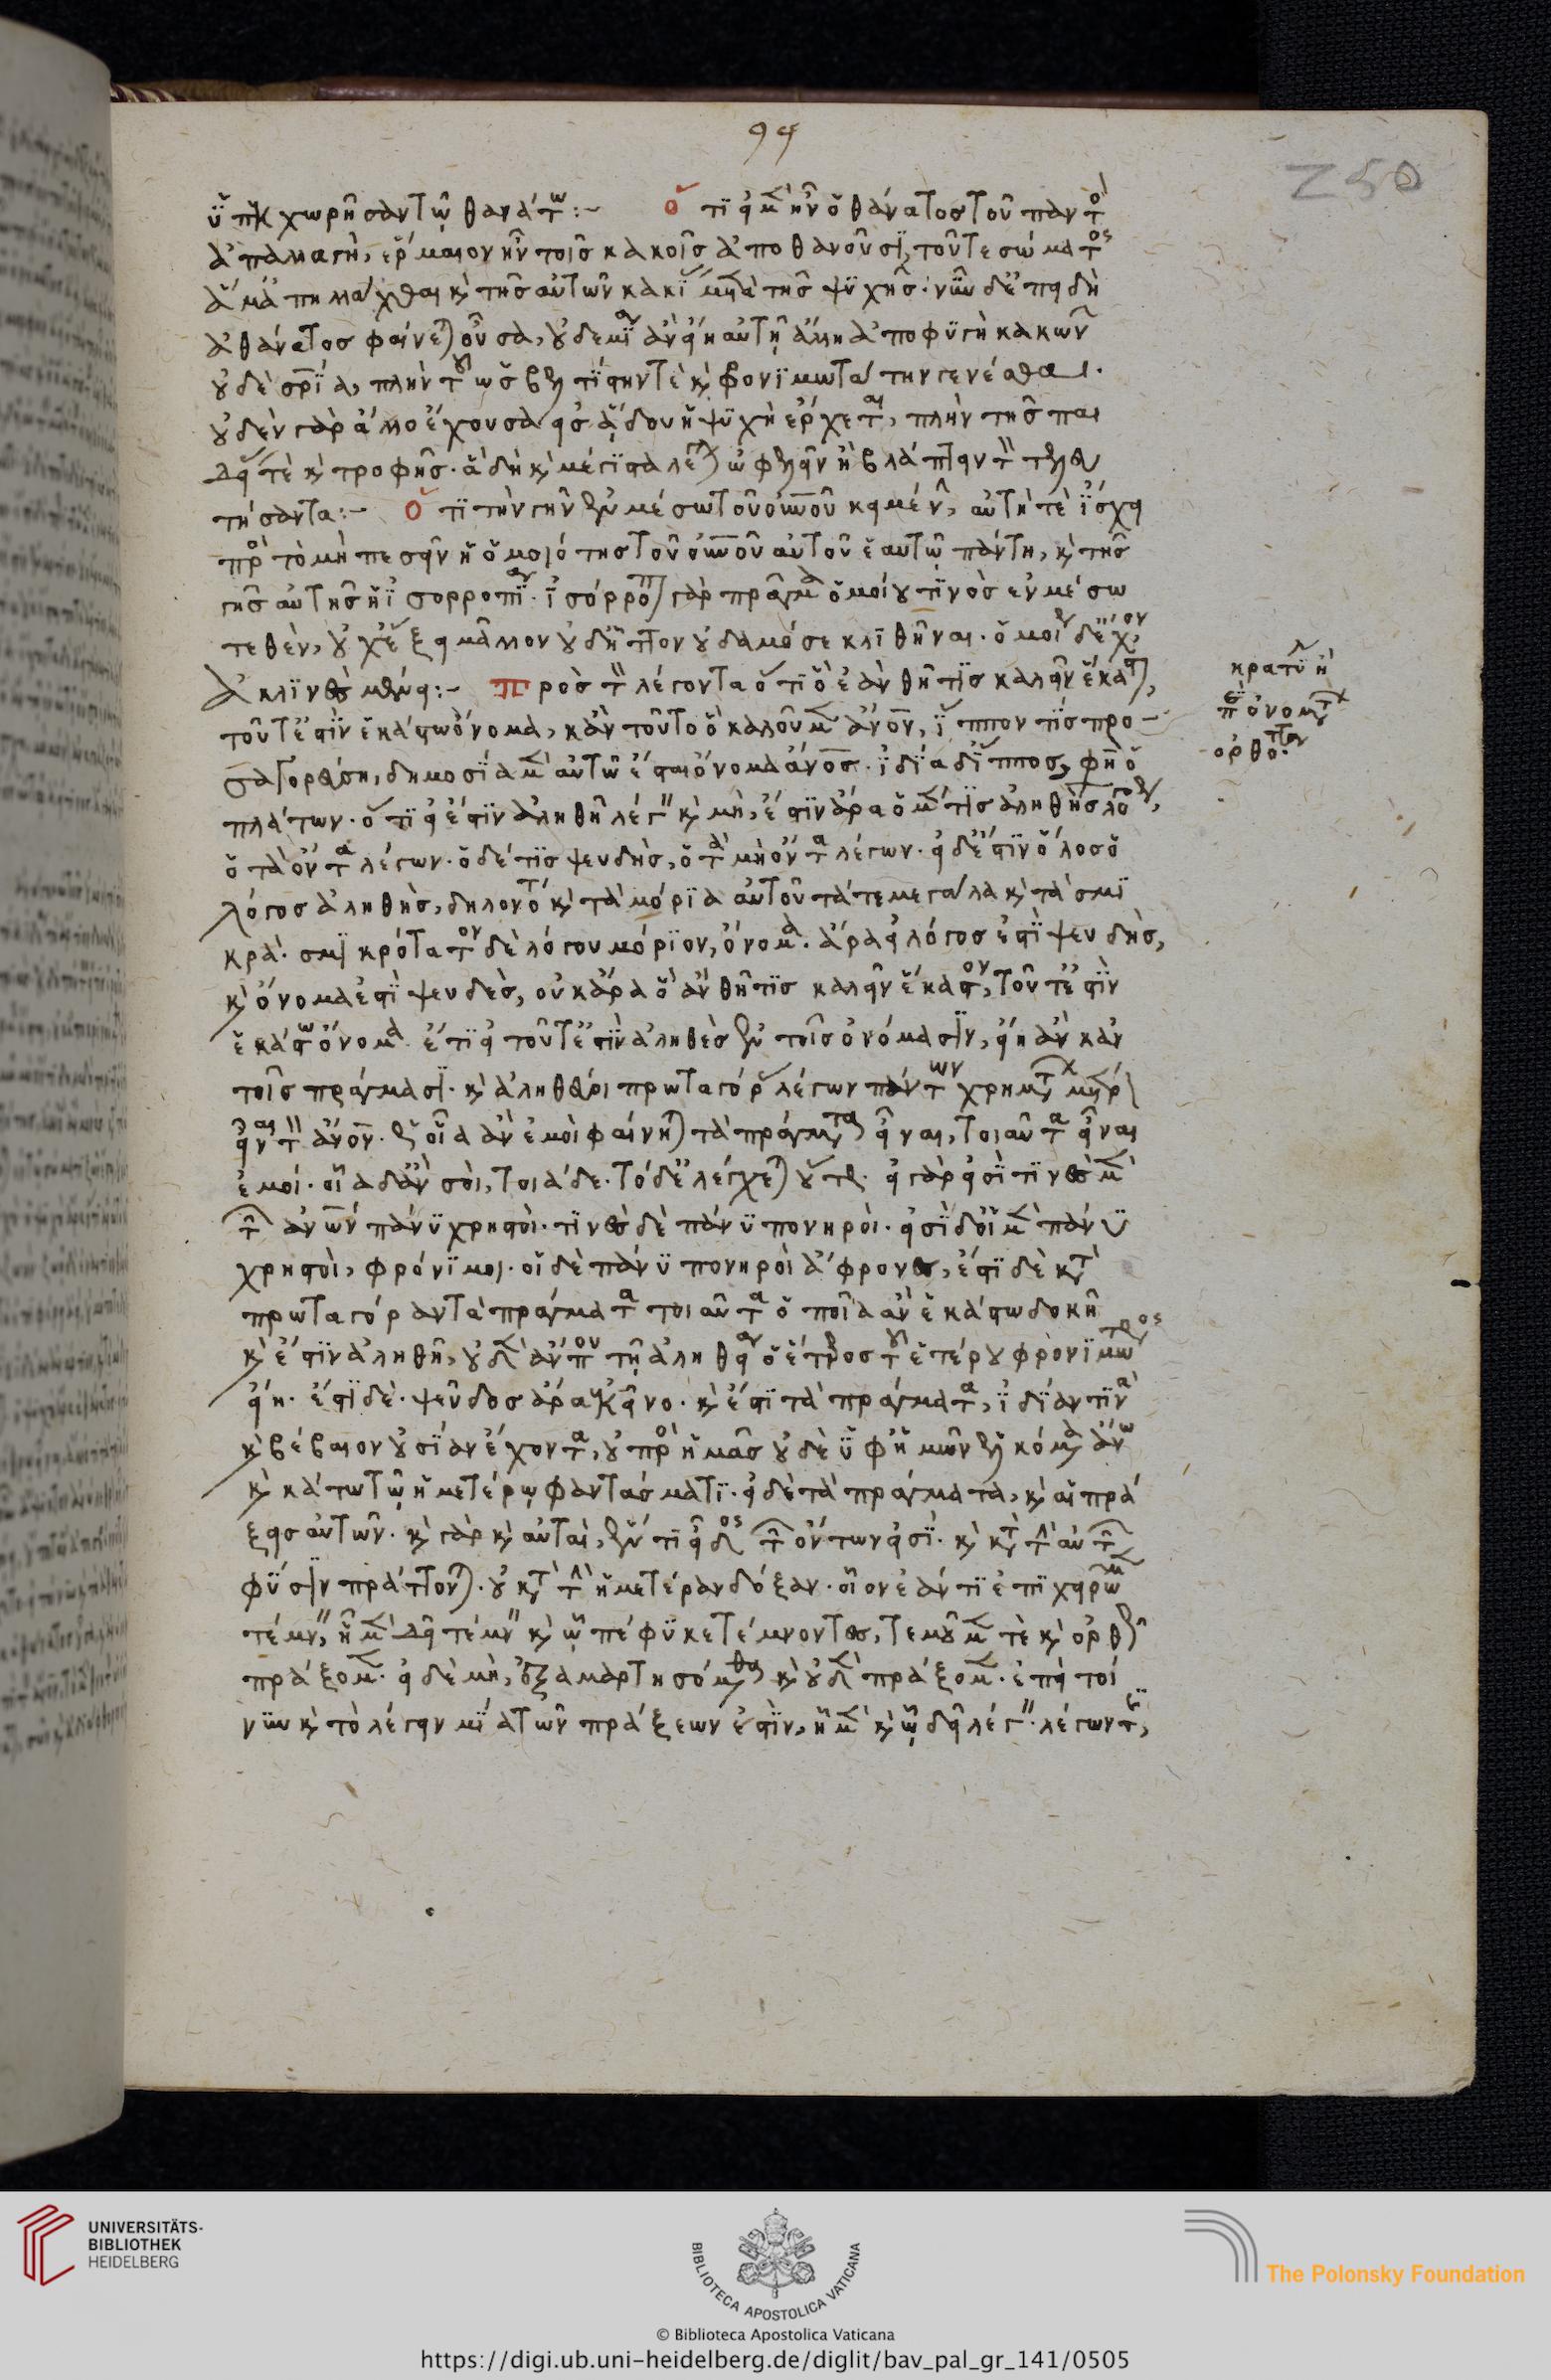 ὑπεκχωρῆσαν τῷ θανάτω:- Ὅτι εἰ μὲν ἦν ὁ θάνατος τοῦ παντὸς
ἀπαλλαγὴ, ἕρμαιον ἦν τοῖς κακοῖς ἀποθανοῦσι, τοῦ τε σώματος
ἅμα ἀπηλλάχθαι καὶ τῆς αὐτῶν κακίας μετὰ τῆς ψυχῆς· νῦν δ' ἐπειδὴ
ἀθάνατος φαίνεται οὖσα, οὐδεμία ἂν εἴη αὐτῇ ἄλλη ἀποφυγὴ κακῶν
οὐδὲ σρία, πλὴν τοῦ ὡς βελτίστην τὲ καὶ φρονιμωτάτην γενέσθαι.
οὐδὲν γὰρ ἄλλο ἔχουσα εἰς ᾅδου ἡ ψυχὴ ἔρχεται, πλὴν τῆς παι
δείας τὲ καὶ τροφῆς· ἃ δὴ καὶ μέγιστα λέγεται ὠφελεῖν ἢ βλάπτειν τὸν τελευ
τήσαντα:- Ὅτι τὴν γῆν ἐν μέσω τοῦ οὐνοῦ κειμένην, αὐτήν τε ἴσχει
πρὸς τὸ μὴ πεσεῖν ἡ ὁμοιότης τοῦ οὐνοῦ αὐτοῦ ἑαυτῷ πάντη, καὶ τῆς
γῆς αὐτῆς ἡ ἰσορροπία· ἰσόρροπον γὰρ πρᾶγμα ὁμοίου τινὸς ἐν μέσω
τεθὲν, οὐχ ἕξει μᾶλλον οὐδ' ἧττον οὐδαμόσε κλιθῆναι· ὁμοίως δ' ἔχον,
ἀκλινὲς μένει:- Πρὸς τὸν λέγοντα ὅτι ὃ ἐὰν θῆ τις καλεῖν ἕκαστον,
τοῦτ' ἐστὶν ἑκάστω ὄνομα, κἂν τοῦτο ὃ καλοῦμεν ἄνον, ἵππον τίς προ-
σαγορεύση, δημοσία μὲν αὐτῶ ἔσται ὄνομα ἄνος· ἰδία δ' ἵππος, φησὶν ὁ
πλάτων· ὅτι εἰ ἔστιν ἀληθῆ λέγειν καὶ μὴ, ἔστιν ἄρα ὁ μέν τις ἀληθὴς λόγος,
ὁ τὰ ὄντα λέγων· ὁ δέ τις ψευδὴς, ὁ τὰ μὴ ὄντα λέγων· εἰ δ' ἔστιν ὅλος ὁ
λόγος ἀληθὴς, δηλονότι καὶ τὰ μόρια αὐτοῦ τά τε μεγάλα καὶ τὰ σμι
κρά· σμικρότατον δὲ λόγου μόριον, ὄνομα· ἄρα εἰ λόγος ἐστὶ ψευδὴς,
καὶ ὄνομα ἐστὶ ψευδὲς, οὐκ ἄρα ὃ ἂν θῆ τις καλεῖν ἕκαστον, τοῦτ' ἐστὶν
ἑκάστω ὄνομα· ἔτι εἰ τοῦτ' ἐστὶν ἀληθὲς ἐν τοῖς ὀνόμασιν, εἴη ἂν κἀν
τοῖς πράγμασι· καὶ ἀληθεύοι πρωταγόρας λέγων πάντων χρημάτων μέτρον
εἶναι τὸν ἄνον· ὡς οἷα ἂν ἐμοὶ φαίνηται τὰ πράγματα εἶναι, τοιαῦτα εἶναι
ἐμοί· οἷα δ' ἂν σοὶ, τοιάδε· τὸ δ' ἐλέγχεται οὕτως· εἰ γὰρ εἰσὶ τινὲς μὲν
τῶν ἀνων πάνυ χρηστοί· τινὲς δὲ πάνυ πονηροὶ· εἰσὶ δ' οἱ μὲν πάνυ
χρηστοὶ, φρόνιμοι· οἱ δὲ πάνυ πονηροὶ ἄφρονες, ἔστι δὲ κατὰ
πρωταγόραν τὰ πράγματα τοιαῦτα ὁποῖα ἂν ἑκάστω δοκῆ
καὶ ἔστιν ἀληθῆ, οὐδὲν ἄν που τῇ ἀληθεία ὁ ἕτερος τοῦ ἑτέρου φρονιμώτερος
εἴη· ἔστι δὲ· ψεῦδος ἄρα κἀκεῖνο· καὶ ἔστι τὰ πράγματα, ἰδίαν τινὰ
καὶ βέβαιον οὐσίαν ἔχοντα, οὐ πρὸς ἡμᾶς οὐδὲ ὑφ' ἡμῶν ἑλκόμενα ἄνω
καὶ κάτω τῷ ἡμετέρῳ φαντάσματι· εἰ δὲ τὰ πράγματα, καὶ αἱ πρά
ξεις αὐτῶν· καὶ γὰρ καὶ αὗται, ἕν τι εἶδος τῶν ὄντων εἰσὶ· καὶ κατὰ τὴν αὐτῶν
φύσιν πράττονται· οὐ κατὰ τὴν ἡμετέραν δόξαν· οἷον ἐάν τι ἐπιχειρῶμεν
τέμνειν, ᾗ μὲν δεῖ τέμνειν καὶ ᾧ πέφυκε τέμνοντες, τεμοῦμεν τὲ καὶ ὀρθῶς
πράξομεν· εἰ δὲ μὴ, ἐξαμαρτησόμεθα καὶ οὐδὲν πράξομεν· ἐπεὶ τοί
νυν καὶ τὸ λέγειν μία τῶν πράξεων ἐστὶν, ᾗ μὲν καὶ ᾧ δεῖ λέγειν· λέγων τις,
κρατύλος ἢ
περὶ ὀνομάτων
ὀρθότητος
250
UNIVERSITÄTS-
BIBLIOTHEK
HEIDELBERG
BIBLIOTECA APOSTOLICA VATICANA
The Polonsky Foundation
© Biblioteca Apostolica Vaticana
https://digi.ub.uni-heidelberg.de/diglit/bav_pal_gr_141/0505